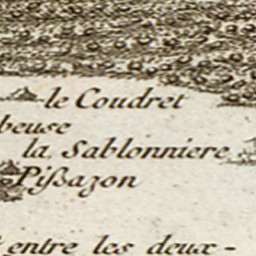 le Coudret
beuse
la Sablonniere
Pißazon
entre les deux-